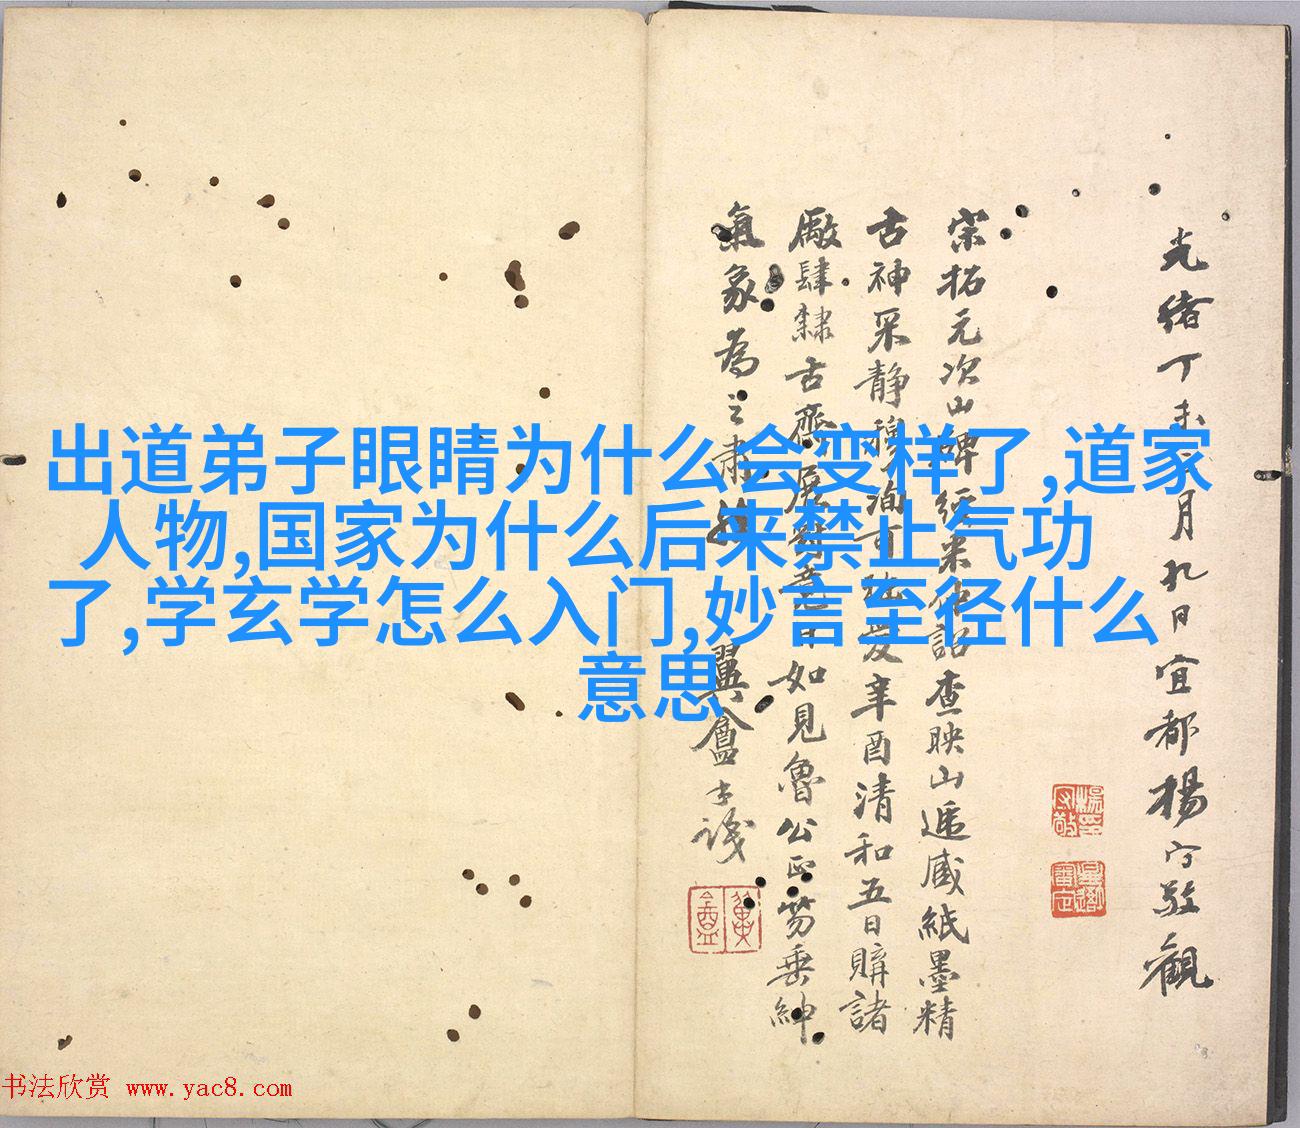 出道弟子眼睛为什么会变样了,道家
人物,国家为什么后来禁止气功
了,学玄学怎么入门,妙言至径什么
意思
光緒丁未 月九日宜都楊守敬觀
宋拓元次山碑 紙墨精
古神采靜穆 辛酉清和五日購諸
廠肆隸古齋 如見魯公正笏垂紳
氣象為之肅 翼盦
書法欣赏 www.yac8.com